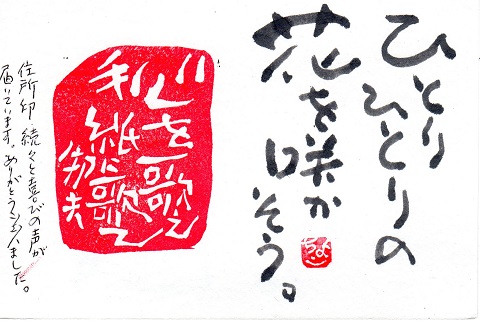 ひとり
ひとりの
花を咲かそう。
心を歌え
手紙に歌え
住所印 続々と喜びの声が
届いています。ありがとうございました。